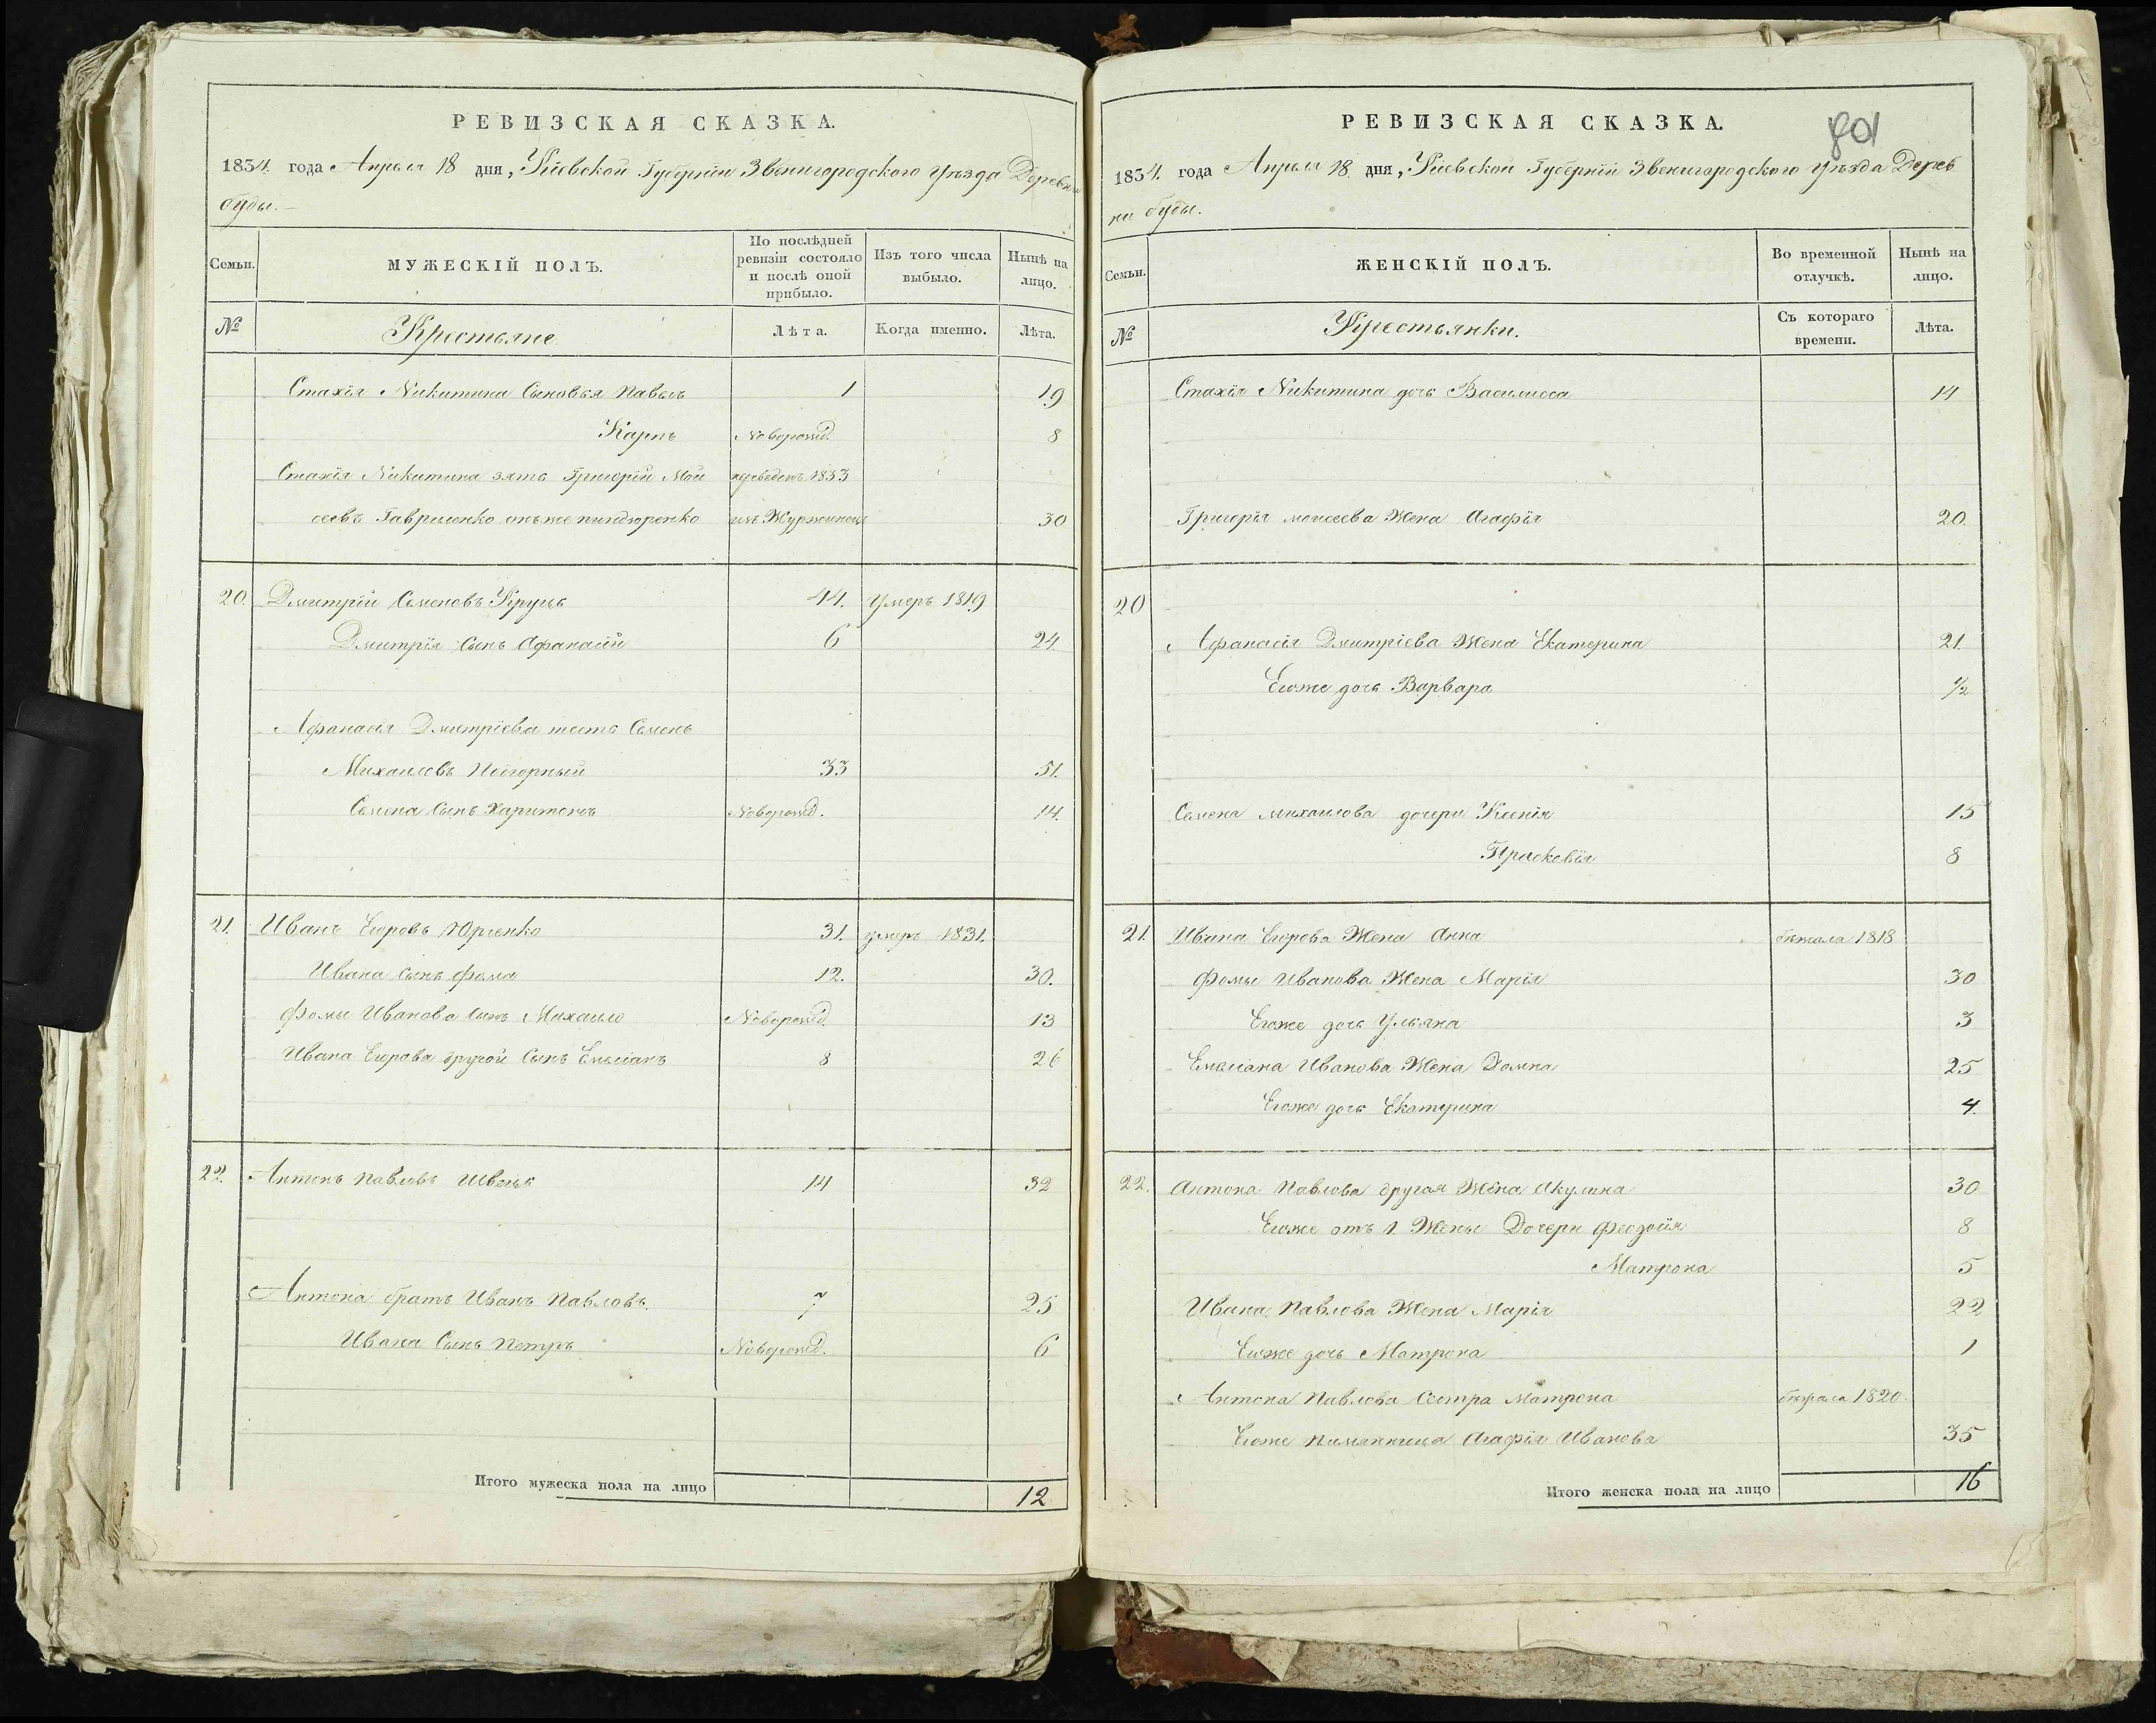 РЕВИЗСКАЯ СКАЗКА.
1834. года Апреля 18 дня, Кіевской Губерніи Звенигородского уезда Деревни
буды.
Семьи.
МУЖЕСКІЙ ПОЛЪ.
По послѣдней ревизіи состояло и послѣ оной прибыло.
Изъ того числа выбыло.
Нынѣ на лицо.
№ Крестьяне Лѣта. Когда именно. Лѣта.
Стахія Никитина Сыновья Павелъ 1 19
Карпъ Новорожд. 8
Стахія Никитина зять Григорій Мои переведенъ 1833
сеевъ Гавриленко онъ же изъ 30
20. Дмитрій Семеновъ Круць 44. умеръ 1819
Дмитрія Сынъ Афанасій 6 24.
Афанасія Дмитріева тесть Семенъ
Михаиловъ 33 51.
Семена Сынъ Харитонъ Новорожд. 14.
21. Иванъ Егоровъ Юрченко 31. умеръ 1831.
Ивана Сынъ Фома 12. 30.
Фомы Иванова Сынъ Михаило Новорожд. 13
Ивана Егорова другой Сынъ Емеліанъ 8 26
22. Антонъ Павловъ Швець 14 32
Антона братъ Иванъ Павловъ. 7 25
Ивана Сынъ Петръ Новорожд. 6
Итого мужеска пола на лицо 12
801
РЕВИЗСКАЯ СКАЗКА.
1834. года Апреля 18. дня, Кіевской Губерніи Звенигородского уезда Дерев
ни буды.
Семьи.
ЖЕНСКІЙ ПОЛЪ.
Во временной отлучкѣ.
Нынѣ на лицо.
№ Крестьянки. Съ котораго времени. Лѣта.
Стахія Никитина дочь Василиса 14
Григорія моисеева Жена Агафія 20.
20
Афанасія Дмитріева Жена Екатерина 21.
Егоже дочь Варвара 1/2
Семена михаилова дочери Ксенія 15
Прасковія 8
21. Ивана Егорова Жена Анна бежала 1818
Фомы Иванова Жена Марія 30
Егоже дочь Ульяна 3
Емеліана Иванова Жена Домна 25
Егоже дочь Екатерина 4.
22. Антона Павлова другая Жена Акулина 30
Егоже отъ 1. Жены Дочери Феодосія 8
Матрона 5
Ивана Павлова Жена Марія 22
Егоже дочь Матрона 1
Антона Павлова Сестра Матрона бежала 1820.
Егоже племянница Агафія Иванова 35
Итого женска пола на лицо 16